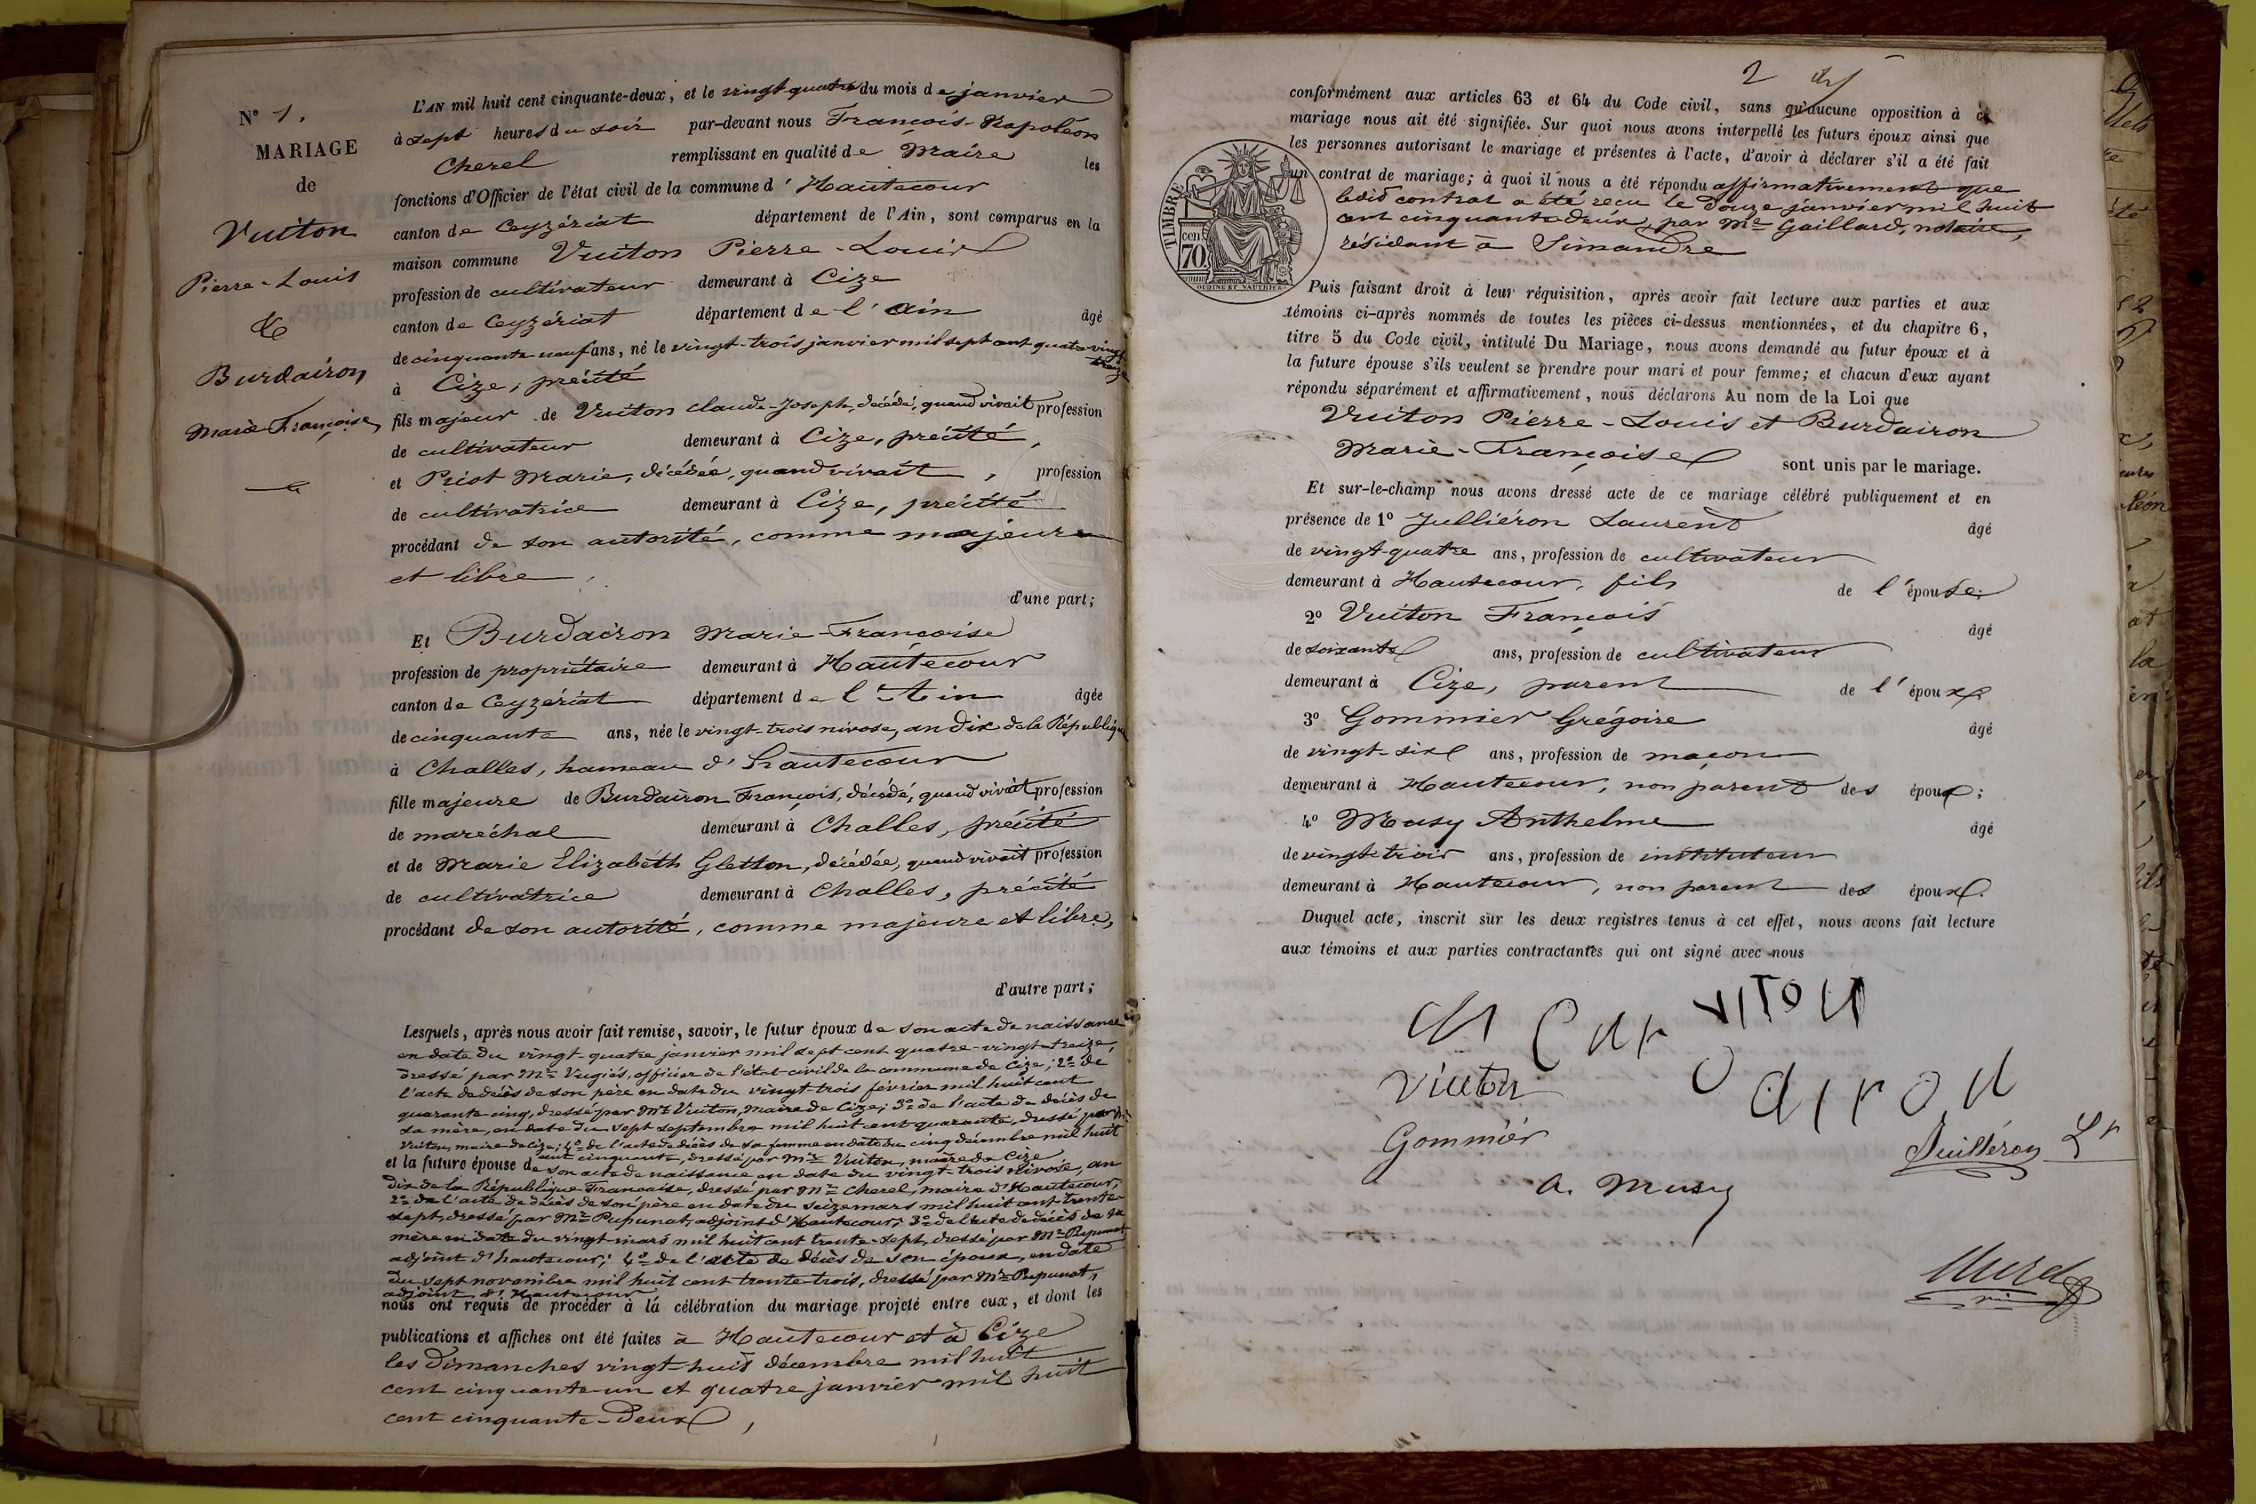 N° 1.
MARIAGE
de
Vuiton
Pierre-Louis
&
Burdairon
Marie Françoise
L'AN mil huit cent cinquante-deux, et le vingt quatre du mois de janvier
à sept heures du soir par-devant nous François-Napoléon
Cherel remplissant en qualité de Maire les
fonctions d'Officier de l'état civil de la commune d'Hautecour
canton de Ceyzériat département de l'Ain, sont comparus en la
maison commune Vuiton Pierre-Louis
profession de cultivateur demeurant à Cize
canton de Ceyzériat département de l'Ain âgé
de cinquante neuf ans, né le vingt-trois janvier mil sept cent quatre-vingt
treize
à Cize, précité
fils majeur de Vuiton Claude-Joseph, décédé, quand vivait profession
de cultivateur demeurant à Cize, précité,
et Piot Marie, décédée, quand vivait, profession
de cultivatrice demeurant à Cize, précité
procédant de son autorité, comme majeure
et libre,
d'une part;
Et Burdairon Marie-Françoise
profession de propriétaire demeurant à Hautecour
canton de Ceyzériat département de l'Ain âgée
de cinquante ans, née le vingt-trois nivose, an dix de la République
à Challes, hameau d'hautecour
fille majeure de Burdairon François, décédé, quand vivait profession
de maréchal demeurant à Challes, précité
et de Marie Elizabéth Gletton, décédée, quand vivait profession
de cultivatrice demeurant à Challes, précité
procédant de son autorité, comme majeure et libre,
d'autre part;
Lesquels, après nous avoir fait remise, savoir, le futur époux de son acte de naissance
en date du vingt-quatre janvier mil sept cent quatre-vingt-treize,
dressé par Mr officier de l'état civil de la commune de Cize; 2° de
l'acte de décès de son père en date du vingt-trois février mil huit cent
quarante cinq, dressé par Mr Vuiton, Maire de Cize; 3° de l'acte de décès de
sa mère, en date du sept septembre mil huit cent quarante, dressé par Mr
Vuiton, maire de Cize; 4° de l'acte de décès de sa femme en date du cinq décembre mil huit
cent cinquante, dressé par Mr Vuiton, maire de Cize
et la future épouse de son acte de naissance en date du vingt-trois nivose, an
dix de la République Française, dressé par Mr Cherel, maire d'Hautecour,
2° de l'acte de décès de son père en date du seize mars mil huit cent trente
sept, dressé par Mr Pupunat, adjoint d'Hautecour; 3° de l'acte de décès de sa
mère en date du vingt mars mil huit cent trente-sept, dressé par Mr Pupunat
adjoint d'hautecour; 4° de l'acte de décès de son époux, en date
du sept novembre mil huit cent trente-trois, dressé par Mr Pupunat,
adjoint d'Hautecour
nous ont requis de procéder à la célébration du mariage projeté entre eux, et dont les
publications et affiches ont été faites à Hautecour et à Cize
les dimanches vingt-huit décembre mil huit
cent cinquante-un et quatre janvier mil huit
cent cinquante-deux,
2
conformément aux articles 63 et 64 du Code civil, sans qu'aucune opposition à ce
mariage nous ait été signifiée. Sur quoi nous avons interpellé les futurs époux ainsi que
les personnes autorisant le mariage et présentes à l'acte, d'avoir à déclarer s'il a été fait
un contrat de mariage; à quoi il nous a été répondu affirmativement que
ledit contrat a été reçu le douze janvier mil huit
cent cinquante-deux, par Me Gaillard, notaire,
résidant à Simandre
TIMBRE
cen
70
OUDINE ET VAUTHIER
Puis faisant droit à leur réquisition, après avoir fait lecture aux parties et aux
témoins ci-après nommés de toutes les pièces ci-dessus mentionnées, et du chapitre 6,
titre 5 du Code civil, intitulé Du Mariage, nous avons demandé au futur époux et à
la future épouse s'ils veulent se prendre pour mari et pour femme; et chacun d'eux ayant
répondu séparément et affirmativement, nous déclarons Au nom de la Loi que
Vuiton Pierre-Louis et Burdairon
Marie-Françoise sont unis par le mariage.
Et sur-le-champ nous avons dressé acte de ce mariage célébré publiquement et en
présence de 1° Julliéron Laurent âgé
de vingt-quatre ans, profession de cultivateur
demeurant à Hautecour, fils de l'épouse;
2° Vuiton François âgé
de soixante ans, profession de cultivateur
demeurant à Cize, parent de l'époux
3° Gommier Grégoire âgé
de vingt-six ans, profession de maçon
demeurant à Hautecour, non parent des époux;
4° Musy Anthelme âgé
de vingt-trois ans, profession de instituteur
demeurant à Hautecour, non parent des époux.
Duquel acte, inscrit sur les deux registres tenus à cet effet, nous avons fait lecture
aux témoins et aux parties contractantes qui ont signé avec nous
VITON
Vuiton
Gommier
Juilléron Lt
A. Musy
Cherel